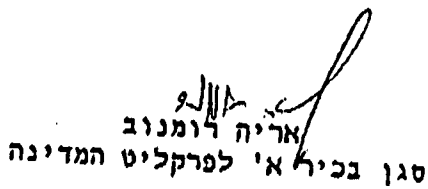 אריה רומנוב
סגן בכיר א' לפרקליט המדינה